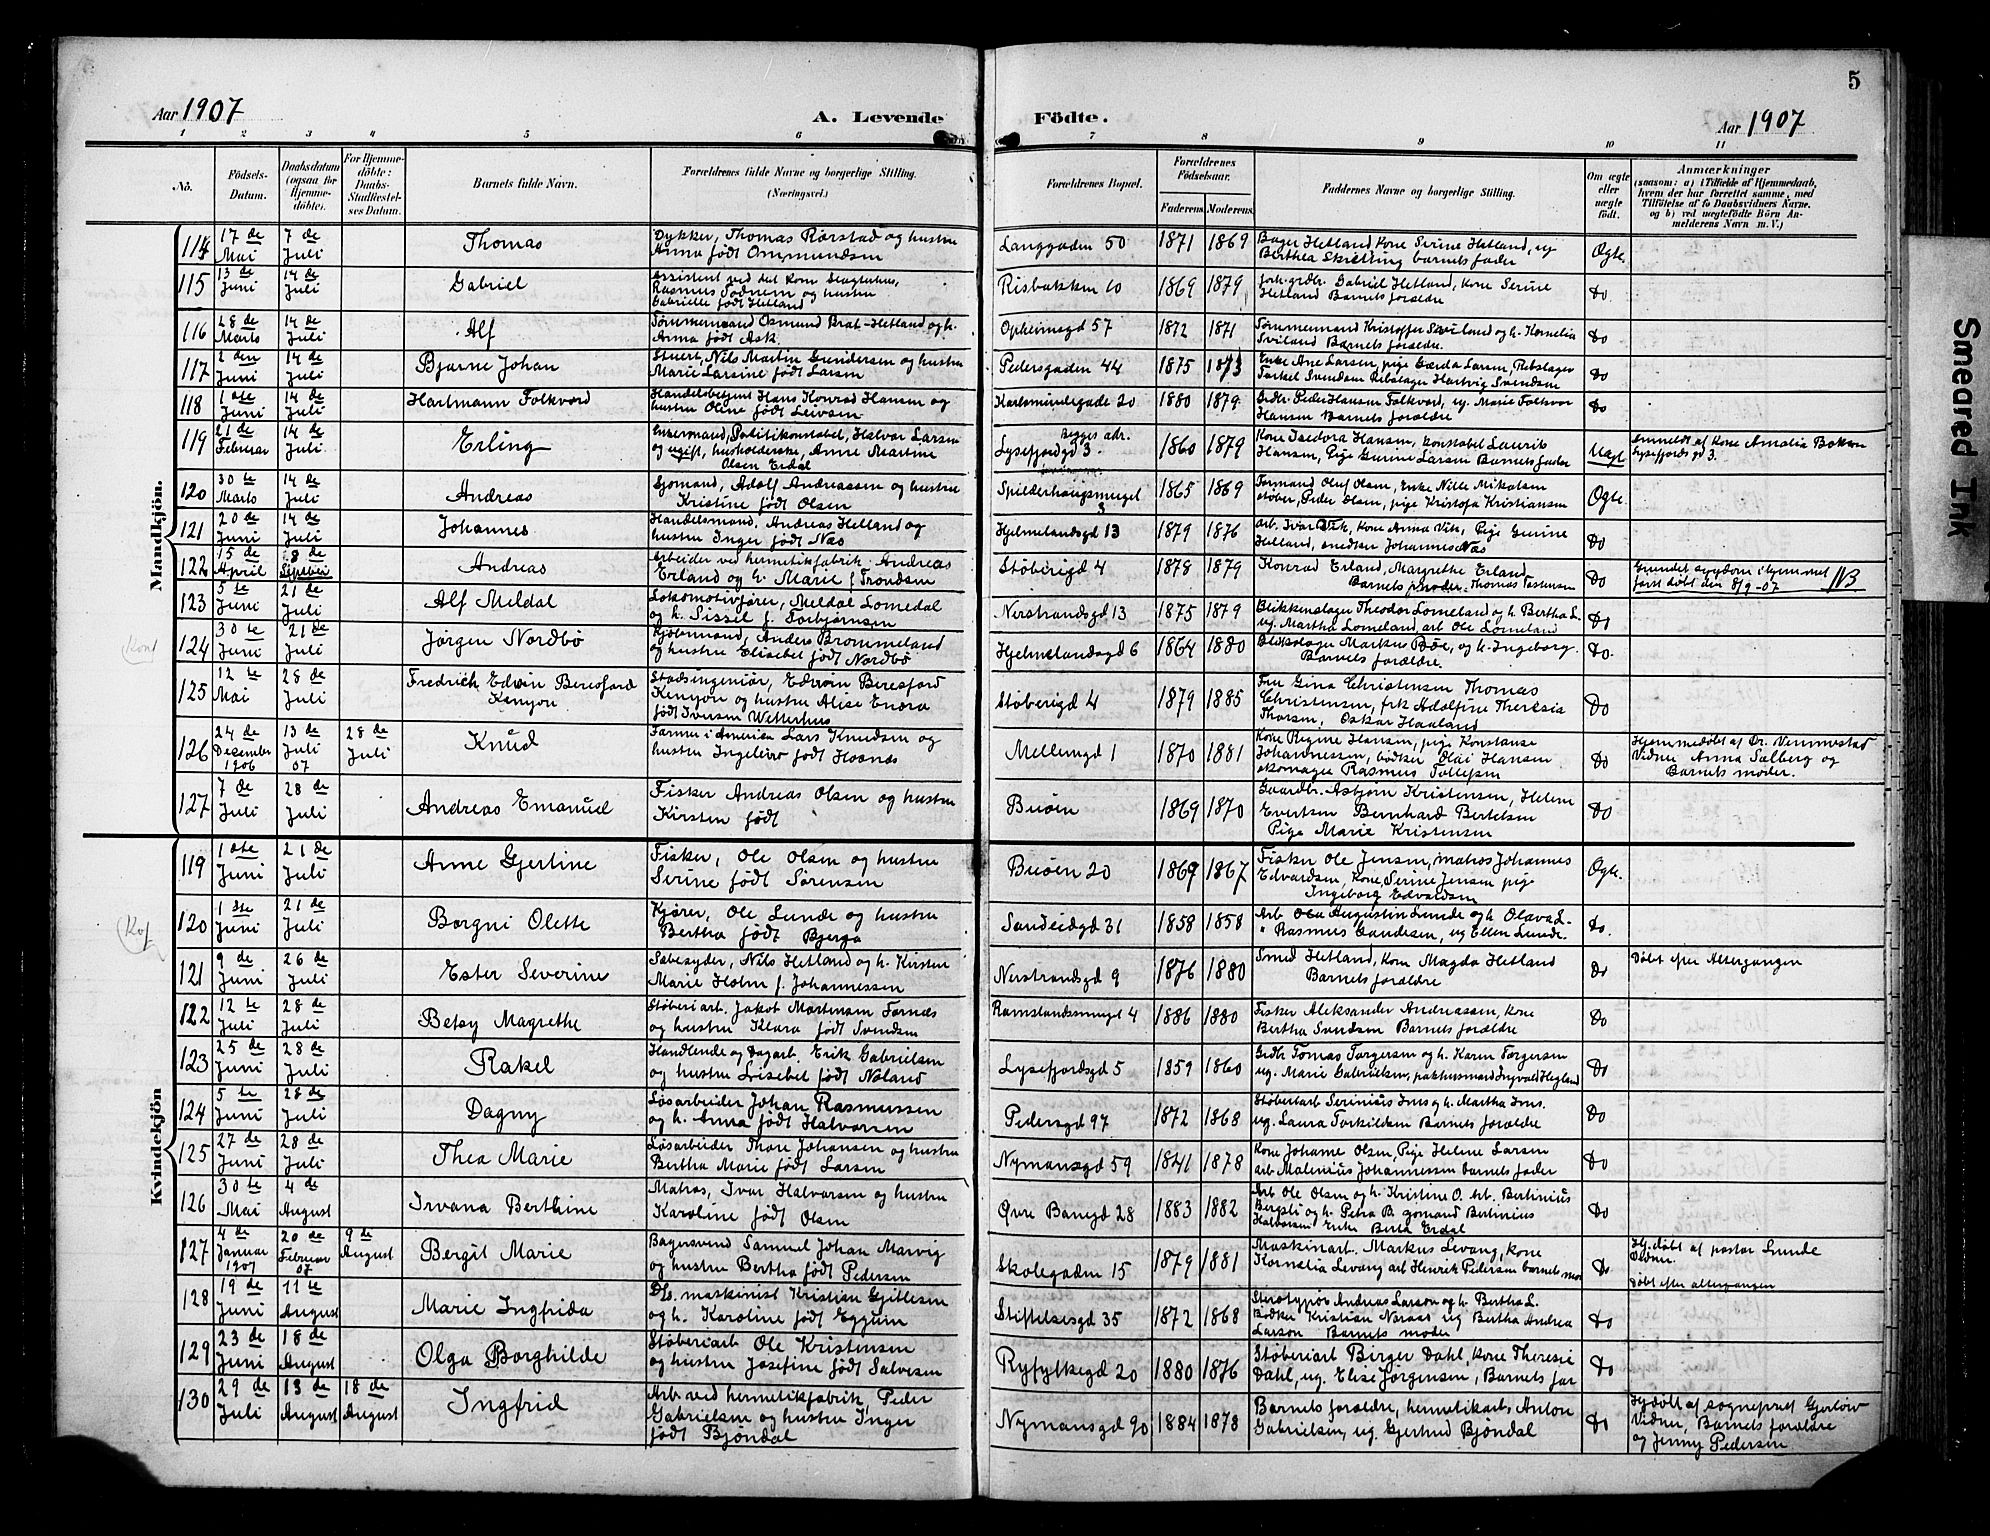 5
Aar 1907
A. Levende Födte.
Aar 1907
1 2 3 4 5 6 7 8 9 10 11
No.
Födsels-Datum.
Daabsdatum (ogsaa for Hjemme-döbte).
For Hjemme-döbte: Daabs-Stadfæstel-ses Datum.
Barnets fulde Navn.
Forældrenes fulde Navne og borgerlige Stilling. (Næringsvei.)
Forældrenes Bopæl.
Forældrenes Födselsaar.
Faderens. Moderens.
Faddernes Navne og borgerlige Stilling.
Om ægte eller uægte födt.
Anmærkninger
(saasom: a) i Tilfælde af Hjemmedaab, hvem der har forrettet samme, med Tilföielse af to Daabsvidners Navne. og b) ved uægtefödte Börn An-melderens Navn m. V.)
Mandkjön.
114 17 de Mai 7 de Juli Thomas Dykker, Thomas Rørstad og hustru Anna født Ommundsen Langgaden 50 1871 1869 Bager Hetland, Kone Serine Hetland, ug Berthea Skretting barnets fader Ogte.
115 13 de Juni 14 de Juli Gabriel Assistent ved det kom Slagtehus, Rasmus Sødnem og hustru Gabrielle født Hetland Risbakken 10 1869 1879 fork.grdbr. Gabriel Hetland, Kone Serine Hetland Barnets foraldre Do
116 28 de Marts 14 de Juli Alf Tømmermand Osmund Brat-Hetland og h. Anna født Ask Opheimsgd 57 1872 1871 Tømmermand Kristoffer Sviland og h. Kornelia Sviland Barnets foraldre. Do
117 2 den Juni 14 de Juli Bjarne Johan Stuert, Nils Martin Gundersen og hustru Marie Larsine født Larsen Pedersgaden 44 1875 1873 Enke Ane Larsen, pige Gærda Larsen, Rebslager Torkel Svendsen Rebslager Hartvig Svendsen Do
118 1 ste Juni 14 de Juli Hartmann Folkvord Handelsbetjent Hans Konrad Hansen og hustru Oline født Leivsen Karlsminnegade 20 1880 1879 Grdbr. Peder Hansen Folkvord, ug. Marie Folkvor Hansen Barnets foraldre Do
119 21 de Februar 14 de Juli Erling Enkemand, Politikonstabel, Halvar Larsen og ugift, husholderske, Anne Martine Olsen Erdal Begges adr. Lysefjordgd 3. 1860 1879 Kone Isedora Hansen, konstabel Laurits Hansen, Pige Gurine Larsen Barnets fader Uægt Anmeldt af Kone Amalia Bokken Lysefjords gd 3.
120 30 te Marts 14 de Juli Andreas Sjomand, Adolf Andreassen og hustru Kristine født Olsen Spilderhaugsmuget 3 1865 1869 Formand Oluf Olsen, Enke Nille Mikalsen støber, Peder Olsen, pige Kristofa Kristiansen Ogte.
121 20 de Juni 14 de Juli Johannes Handelsmand, Andreas Helland og hustru Inger født Næs Hjelmelandsgd 13 1879 1876 arb. Ivar Vik, Kone Anna Vik, Pige Gurine Helland, snedker Johannes Næs Do
122 15 de April 8 de September Andreas Arbeider ved hermetikfabrik. Andreas Erland og h. Marie f Trondsen Støberigd 4 1878 1879 Konrad Erland, Margrethe Erland Barnets moder. Thomas Tastensen Do Grundet sygdom i hjemmet først døbt den 8/9-07 NB
123 5 te Juni 21 de Juli Alf Meldal Lokomotivfører, Meldal Lomedal og h. Sissel f. Torbjørnsen Nerstrandsgd 13 1875 1879 Blikkenslager Theodor Lomeland og h Bertha L. ug. Martha Lomeland, arb Ole Lomeland Do
Konf
124 30 te Juni 21 de Juli Jørgen Nordbø Kjøbmand, Anders Brommeland og hustru Elisebet født Nordbø Hjelmelandsgd 6 1864 1880 Blikslager Markus Bøe, og h. Ingeborg. Barnets foraldre. Do.
125 12 te Mai 28 de Juli Fredrich Edvin Beresford Kenyon Stadsingeniør, Edvin Beresford Kenyon og hustru Alise Endra født Iversen Wetterhus Støberigd 4 1879 1885 Fru Gina Christensen Thomas Christensen, frk Adolfine Theresia Thorsen, Oskar Haaland Do
126 24 de Desember 1906 13 de Juli 07 28 de Juli Knud Farmer i Amerika Lars Knudsen og hustru Ingeleiv født Hosnæs Mellemgd 1 1870 1881 Kone Regine Hansen, pige Konstanse Johannessen, bødker Olai Hansen skomager Rasmus Tollefsen Do Hjemmedøbt af Dr. Vennvestad Vidner Anna Salberg og Barnets moder.
127 7 de Juli 28 de Juli Andreas Emanuel Fisker Andreas Olsen og hustru Kirsten født Buøen 1869 1870 Gaardbr. Asbjørn Kristensen, Helene Evertsen Bernhard Bertelsen Pige Marie Kristensen Do
Kvindekjön
119 1 ste Juni 21 de Juli Anne Gjertine Fisker, Ole Olsen og hustru Serine født Sørensen Buøen 20 1869 1867 Fisker Ole Jensen, matros Johannes Edvardsen, Kone, Serine Jensen pige Ingeborg Edvardsen Ogte.
120 1 ste Juni 21 de Juli Borgni Olette Kjører, Ole Lunde og hustru Bertha født Bjerga Sandeidgd 31 1858 1858 Arb Ola Augustin Lunde og h. Olava L. " Rasmus Gaudesen, ug Ellen Lunde. Do.
121 9 de Juni 26 de Juli Ester Severine Sæbesyder, Nils Hetland og h. Kirsten Marie Holm f. Johannessen Nerstrandsgd 9 1876 1880 Smed Hetland, Kone Magda Hetland Barnets foraldre Do Døbt efter Altergangen
122 12 te Juli 28 de Juli Betsy Magrethe Støberiarb. Jakob Martinsen Fornæs og hustru Klara født Svendsen Ramslandsmuget 4 1886 1880 Fisker Aleksander Andreassen, Kone Bertha Svendsen Barnets foraldre Do
123 25 de Juni 28 de Juli Rakel Handlende og Dagarb. Erik Gabrielsen og hustru Lisebet født Noland Lysefjordsgd 5 1859 1860 Grdbr Tomas Torgersen og h. Karen Torgersen ug. Marie Gabrielsen, pakhusmand Ingvald Hegland Do
124 5 te Juni 28 de Juli Dagny Løsarbeider Johan Rasmussen og h. Anna født Halvorsen Pedersgd 97 1872 1868 Støberiarb Serinius Ims og h. Martha Ims. ug. Laura Torkildsen Barnets foraldre Do
125 27 de Juni 28 de Juli Thea Marie Løsarbeider Thore Johansen og hustru Bertha Marie født Larsen Nymansgd 59 1841 1878 Kone Johanne Olsen, Pige Helene Larsen arb Malenius Johannessen barnets fader Do
126 30 te Mai 4 de August Irvana Berthine Matros, Ivar Halvorsen og hustru Karoline født Olsen Øvre Banegd 28 1883 1882 Arb Ole Olsen og h. Kristine O. Arb. Bertinius Bergsli og h. Petra B. sjomand Bertinius Halvorsen Enke Berta Erdal Do
127 4 de Januar 1907 20 de Februar 07 9 de August Bergit Marie Bagersvend Samuel Johan Marvig og hustru Bertha født Pedersen Skolegaden 15 1879 1881 Maskinarb. Markus Levang, kone Kornelia Levang arb Henrik Pedersen barnets mo Do Hj. døbt af pastor Lunde Vidner. Døbt efter altergangen
128 19 de Juni 11 te August Marie Ingfrida Ds. maskinist Kristian Gjillesen og h. Karoline født Eggum Stiftelsesgd 35 1872 1868 Sterotypør Andreas Larson og h. Bertha L. Bødker Kristian Naraas ug Bertha Andrea Larson Barnets moder Do
129 23 de Juni 18 de August Olga Borghilde Støberiarb Ole Kristensen og hustru Josefine født Salvesen Ryfylkegd 20 1880 1876 Støberiarb Birger Dahl, kone Theresie Dahl, ug. Elise Jørgensen, Barnets far Do
130 29 de Juli 13 de August 18 de August Ingfrid Arb. ved hermetikfabrik, Peder Gabrielsen og hustru Inger født Bjøndal Nymansgd 90 1884 1878 Barnets foraldre, hermetikarb. Anton Gabrielsen, ug. Gjertrud Bjøndal Do Hjdøbt af sogneprest Gjerløw Vidner, Barnets foraldre og Jenny Pedersen
Smeared Ink